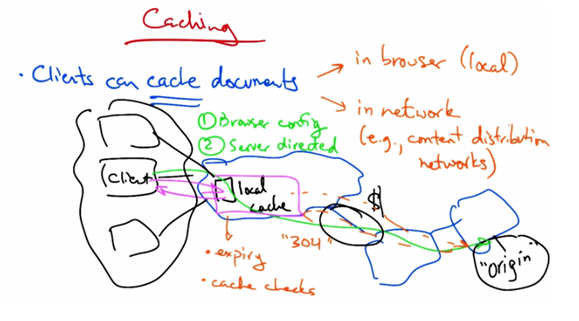 Caching
• Clients can cache documents
→ in browser (local)
→ in network
(e.g., content distribution
networks)
① Browser config
② Server directed
Client
local
cache
$
"304"
• expiry
• cache checks
"Origin"